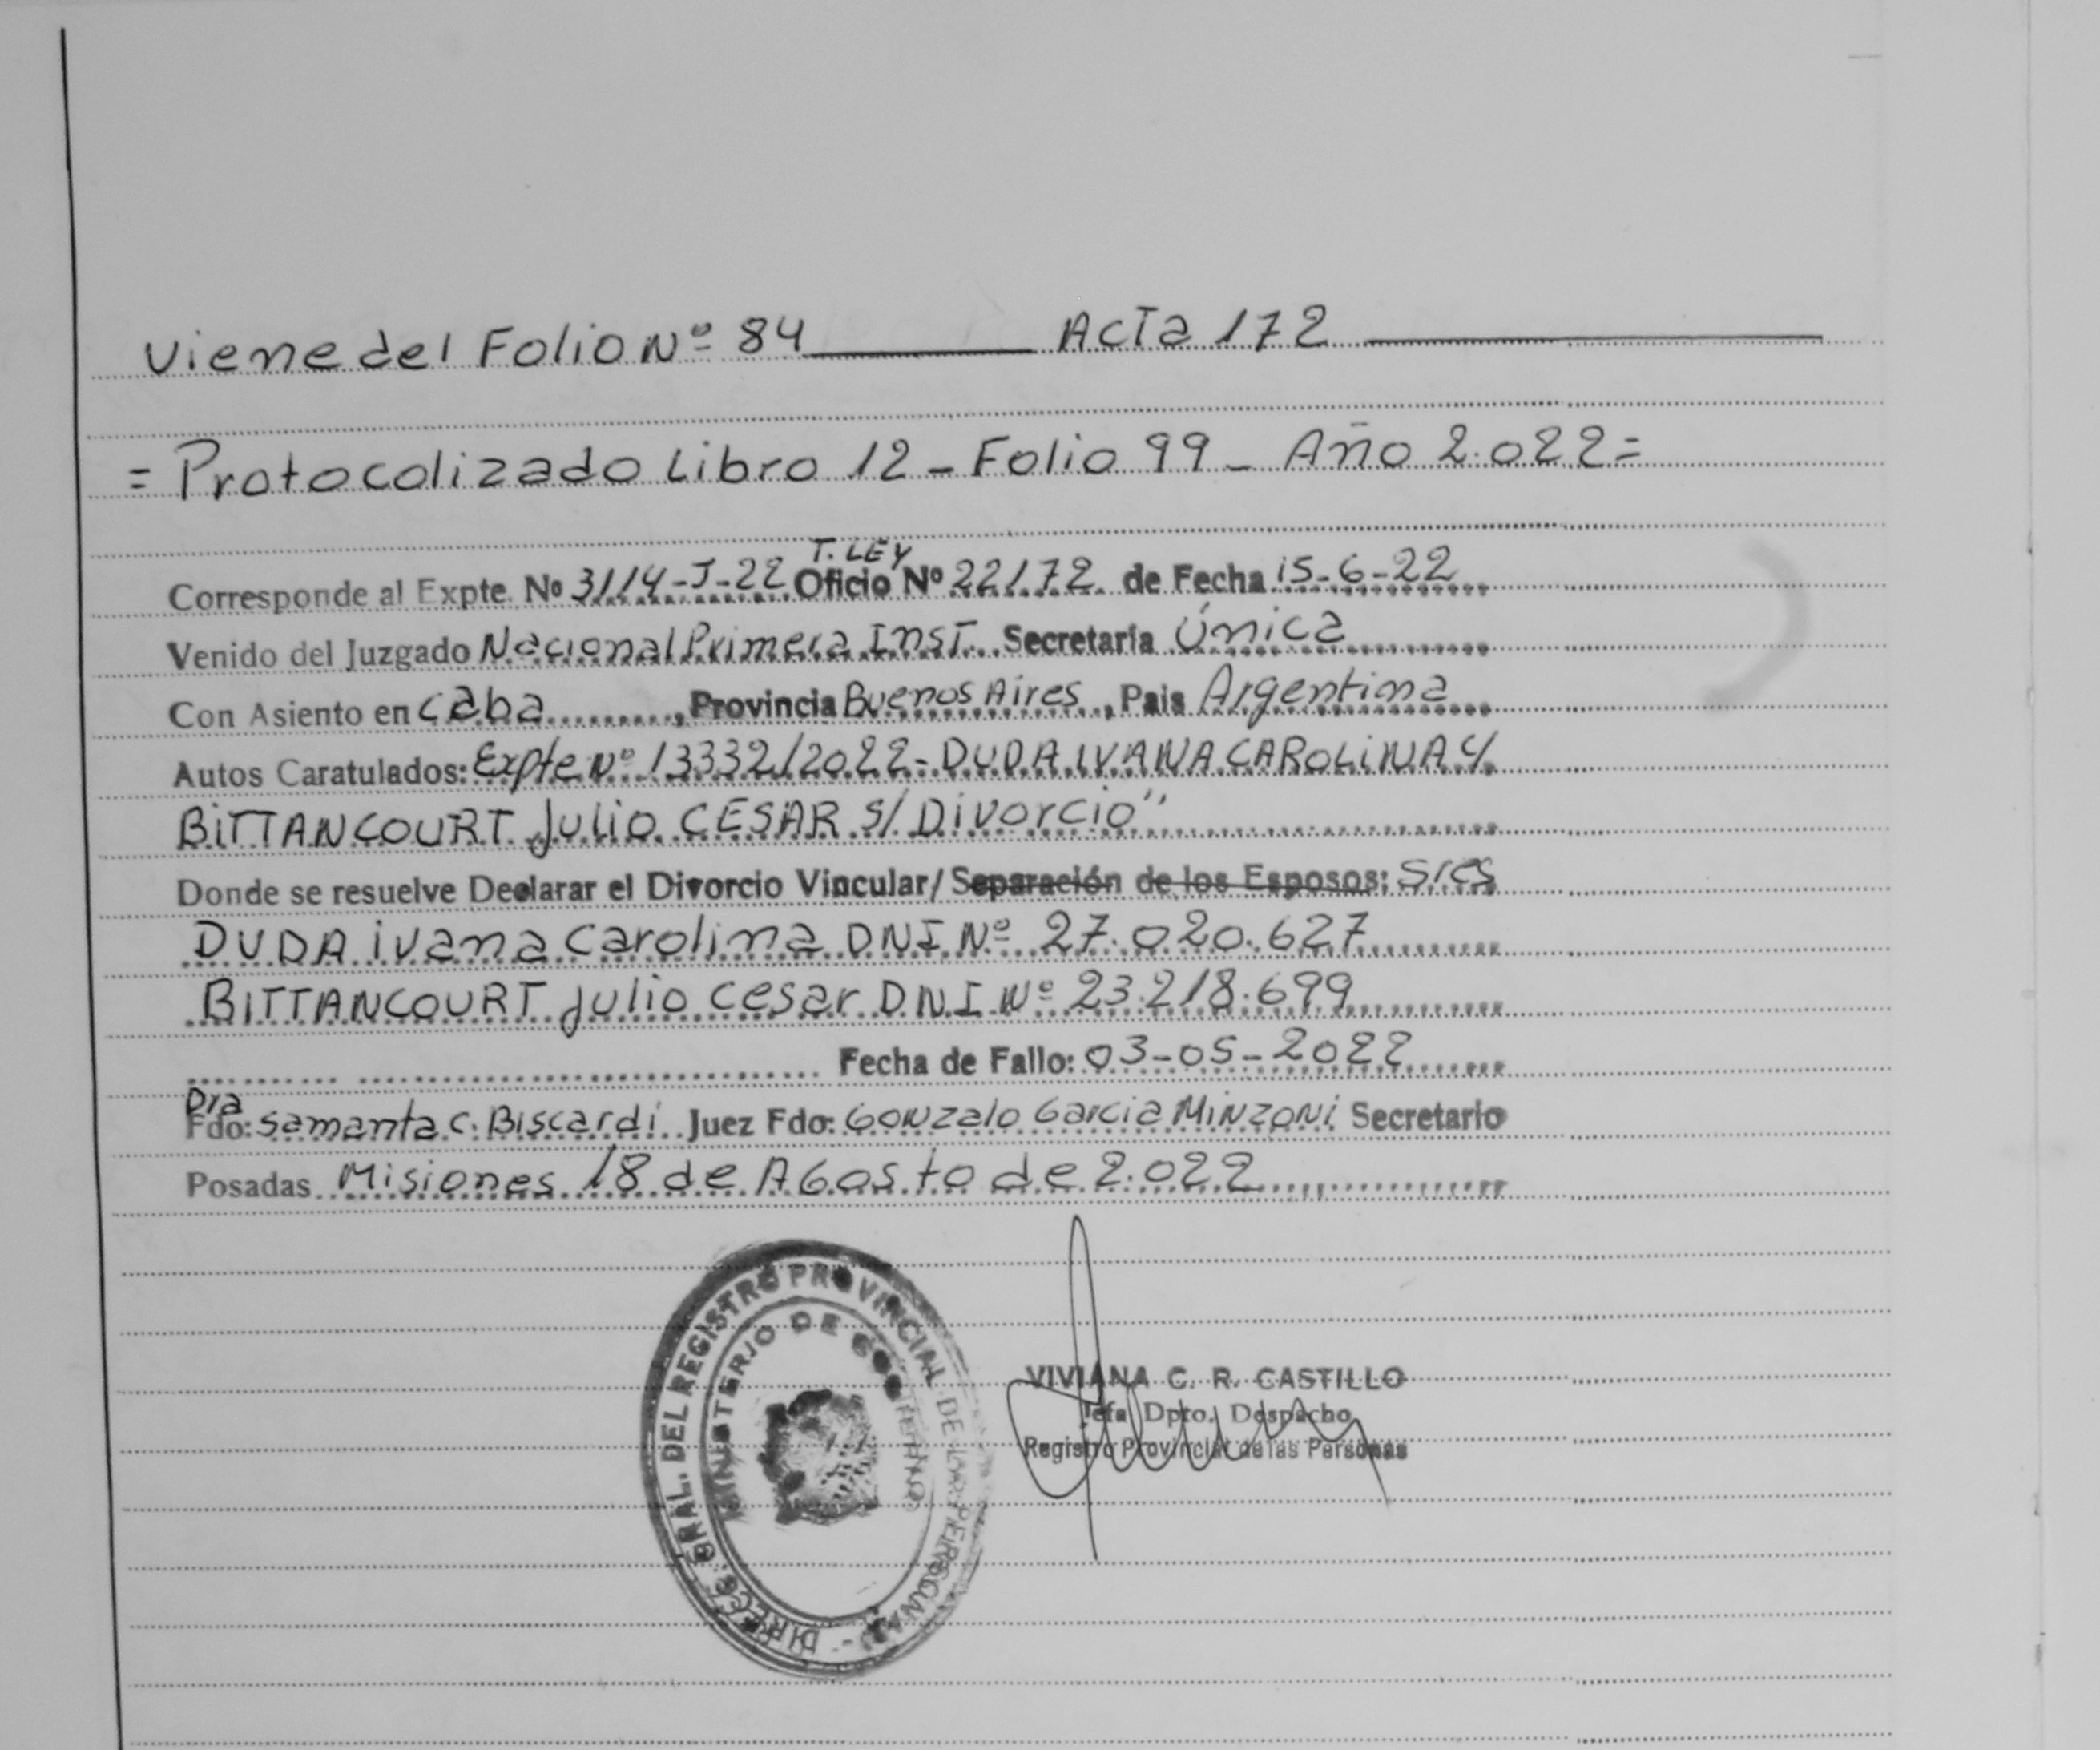 Viene del Folio Nº 84 Acta 172
= Protocolizado Libro 12 - Folio 99 - Año 2.022 =
T. LEY
Corresponde al Expte. No 3114-J-22 Oficio Nº 22172 de Fecha 15-6-22
Venido del Juzgado Nacional Primera Inst. Secretaría Única
Con Asiento en Caba, Provincia Buenos Aires, Pais Argentina
Autos Caratulados: Expte Nº 13332/2022 - DUDA IVANA CAROLINA C/
BITTANCOURT Julio CESAR S/ Divorcio"
Donde se resuelve Declarar el Divorcio Vincular/ Separación de los Esposos: Sres
DUDA ivana Carolina DNI Nº 27.020.627
BITTANCOURT Julio Cesar DNI Nº 23.218.699
Fecha de Fallo: 03-05-2022
Dra
Fdo: Samanta C. Biscardi Juez Fdo: Gonzalo Garcia Minzoni Secretario
Posadas Misiones 18 de Agosto de 2.022
DIRECC. GRAL. DEL REGISTRO PROVINCIAL DE LAS PERSONAS
MINISTERIO DE GOBIERNO
VIVIANA C. R. CASTILLO
Jefa Dpto. Despacho
Registro Provincial de las Personas